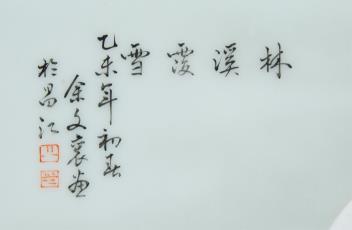 林溪雪
乙未年初春
余文襄畫
於昌江